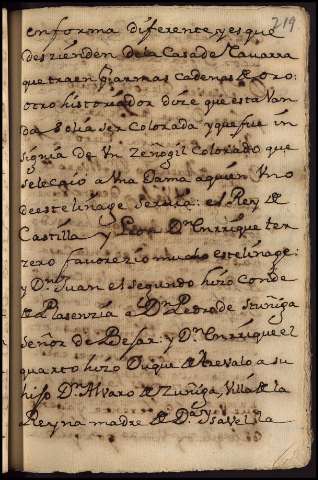 219
en forma diferente, y es que
deszienden de la Casa de Navarra
que traen por armas cadenas de oro:
otro historiador dize que esta Van
da solia ser Colorada y que fue in
signia de Vn zeñogil Colorado que
se le caio a Vna Dama a quien Vno
de este linage seruia: el Rey de
Castilla y Leon Dn. Enrrique ter
zero favorezio mucho este linage:
y Dn. Juan el segundo hizo Conde
de Plasenzia a Dn. Pedro de Stuñiga
señor de Bejar. y Dn. Enrrique el
quarto hizo Duque de Arevalo a su
hijo Dn. Alvaro de Zuñiga, Villa de la
Reyna madre de Da. Ysavel la